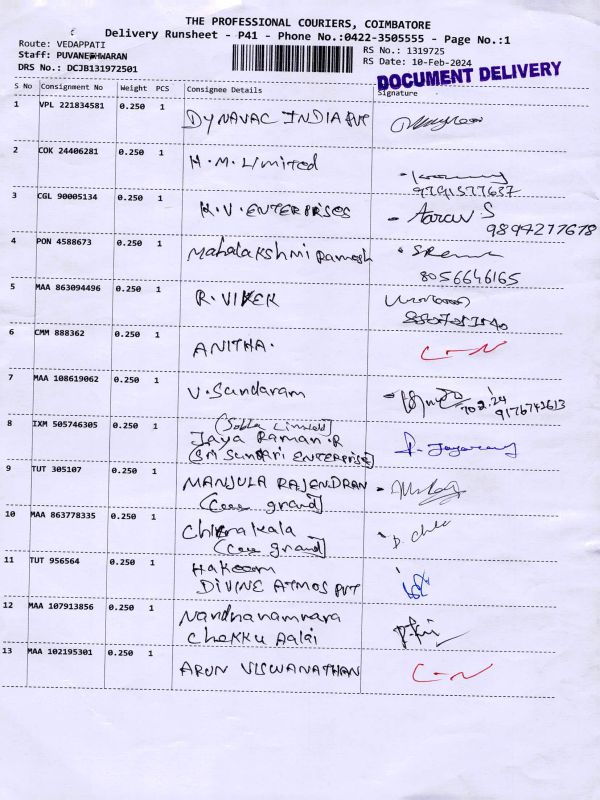 THE PROFESSIONAL COURIERS, COIMBATORE
Delivery Runsheet - P41 - Phone No.:0422-3505555 - Page No.:1
Route: VEDAPPATI
RS No.: 1319725
Staff: PUVANESHWARAN
RS Date: 10-Feb-2024
DRS No.: DCJB131972501
DOCUMENT DELIVERY
S No Consignment No Weight PCS Consignee Details Signature
1 VPL 221834581 0.250 1 DYNAVAC INDIA PVT
2 COK 24406281 0.250 1 H.M. Limited
9791577637
3 CGL 90005134 0.250 1 K.V. ENTERPRISES - Aarav S
9894277678
4 PON 4588673 0.250 1 Mahalakshmi Ramesh
8056646165
5 MAA 863094496 0.250 1 R. VIVEK
6 CMM 888362 0.250 1 ANITHA. C-N
7 MAA 108619062 0.250 1 V. Sundaram
9176742613
8 IXM 505746305 0.250 1 (Sobha Limited)
Jaya Raman.R
(SM Sundari ENTERPRISE)
9 TUT 305107 0.250 1 MANJULA RAJENDRAN
grand)
10 MAA 863778335 0.250 1 Chitrakala
grand)
11 TUT 956564 0.250 1 Hakeem
DIVINE ATMOS PVT
12 MAA 107913856 0.250 1
Chekku Aalai
13 MAA 102195301 0.250 1 ARUN VISWANATHAN C-N